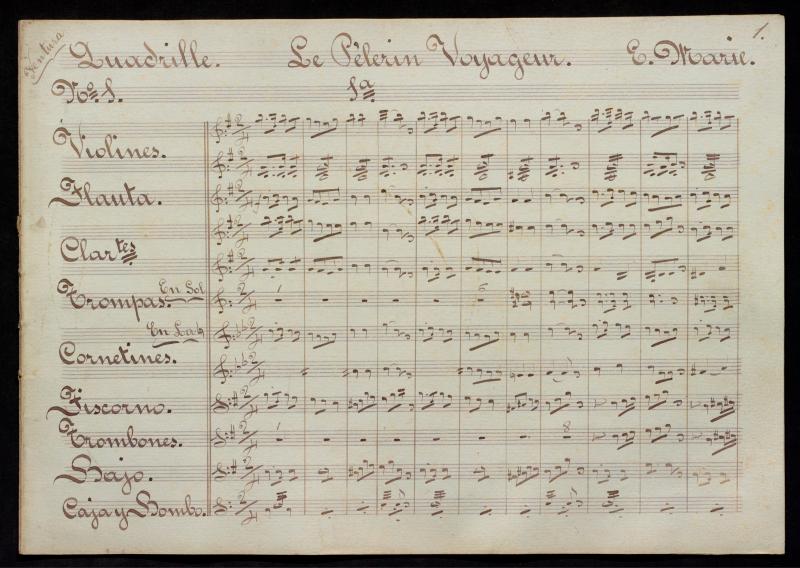 Ventura
Quadrille. Le Pêlerin Voyageur. E. Marie. 1.
Nº 1. 1ª
Violines.
Flauta.
Clartes
Trompas. En Sol
En La♮
Cornetines.
Fiscorno.
Trombones.
Bajo.
Caja y Bombo.